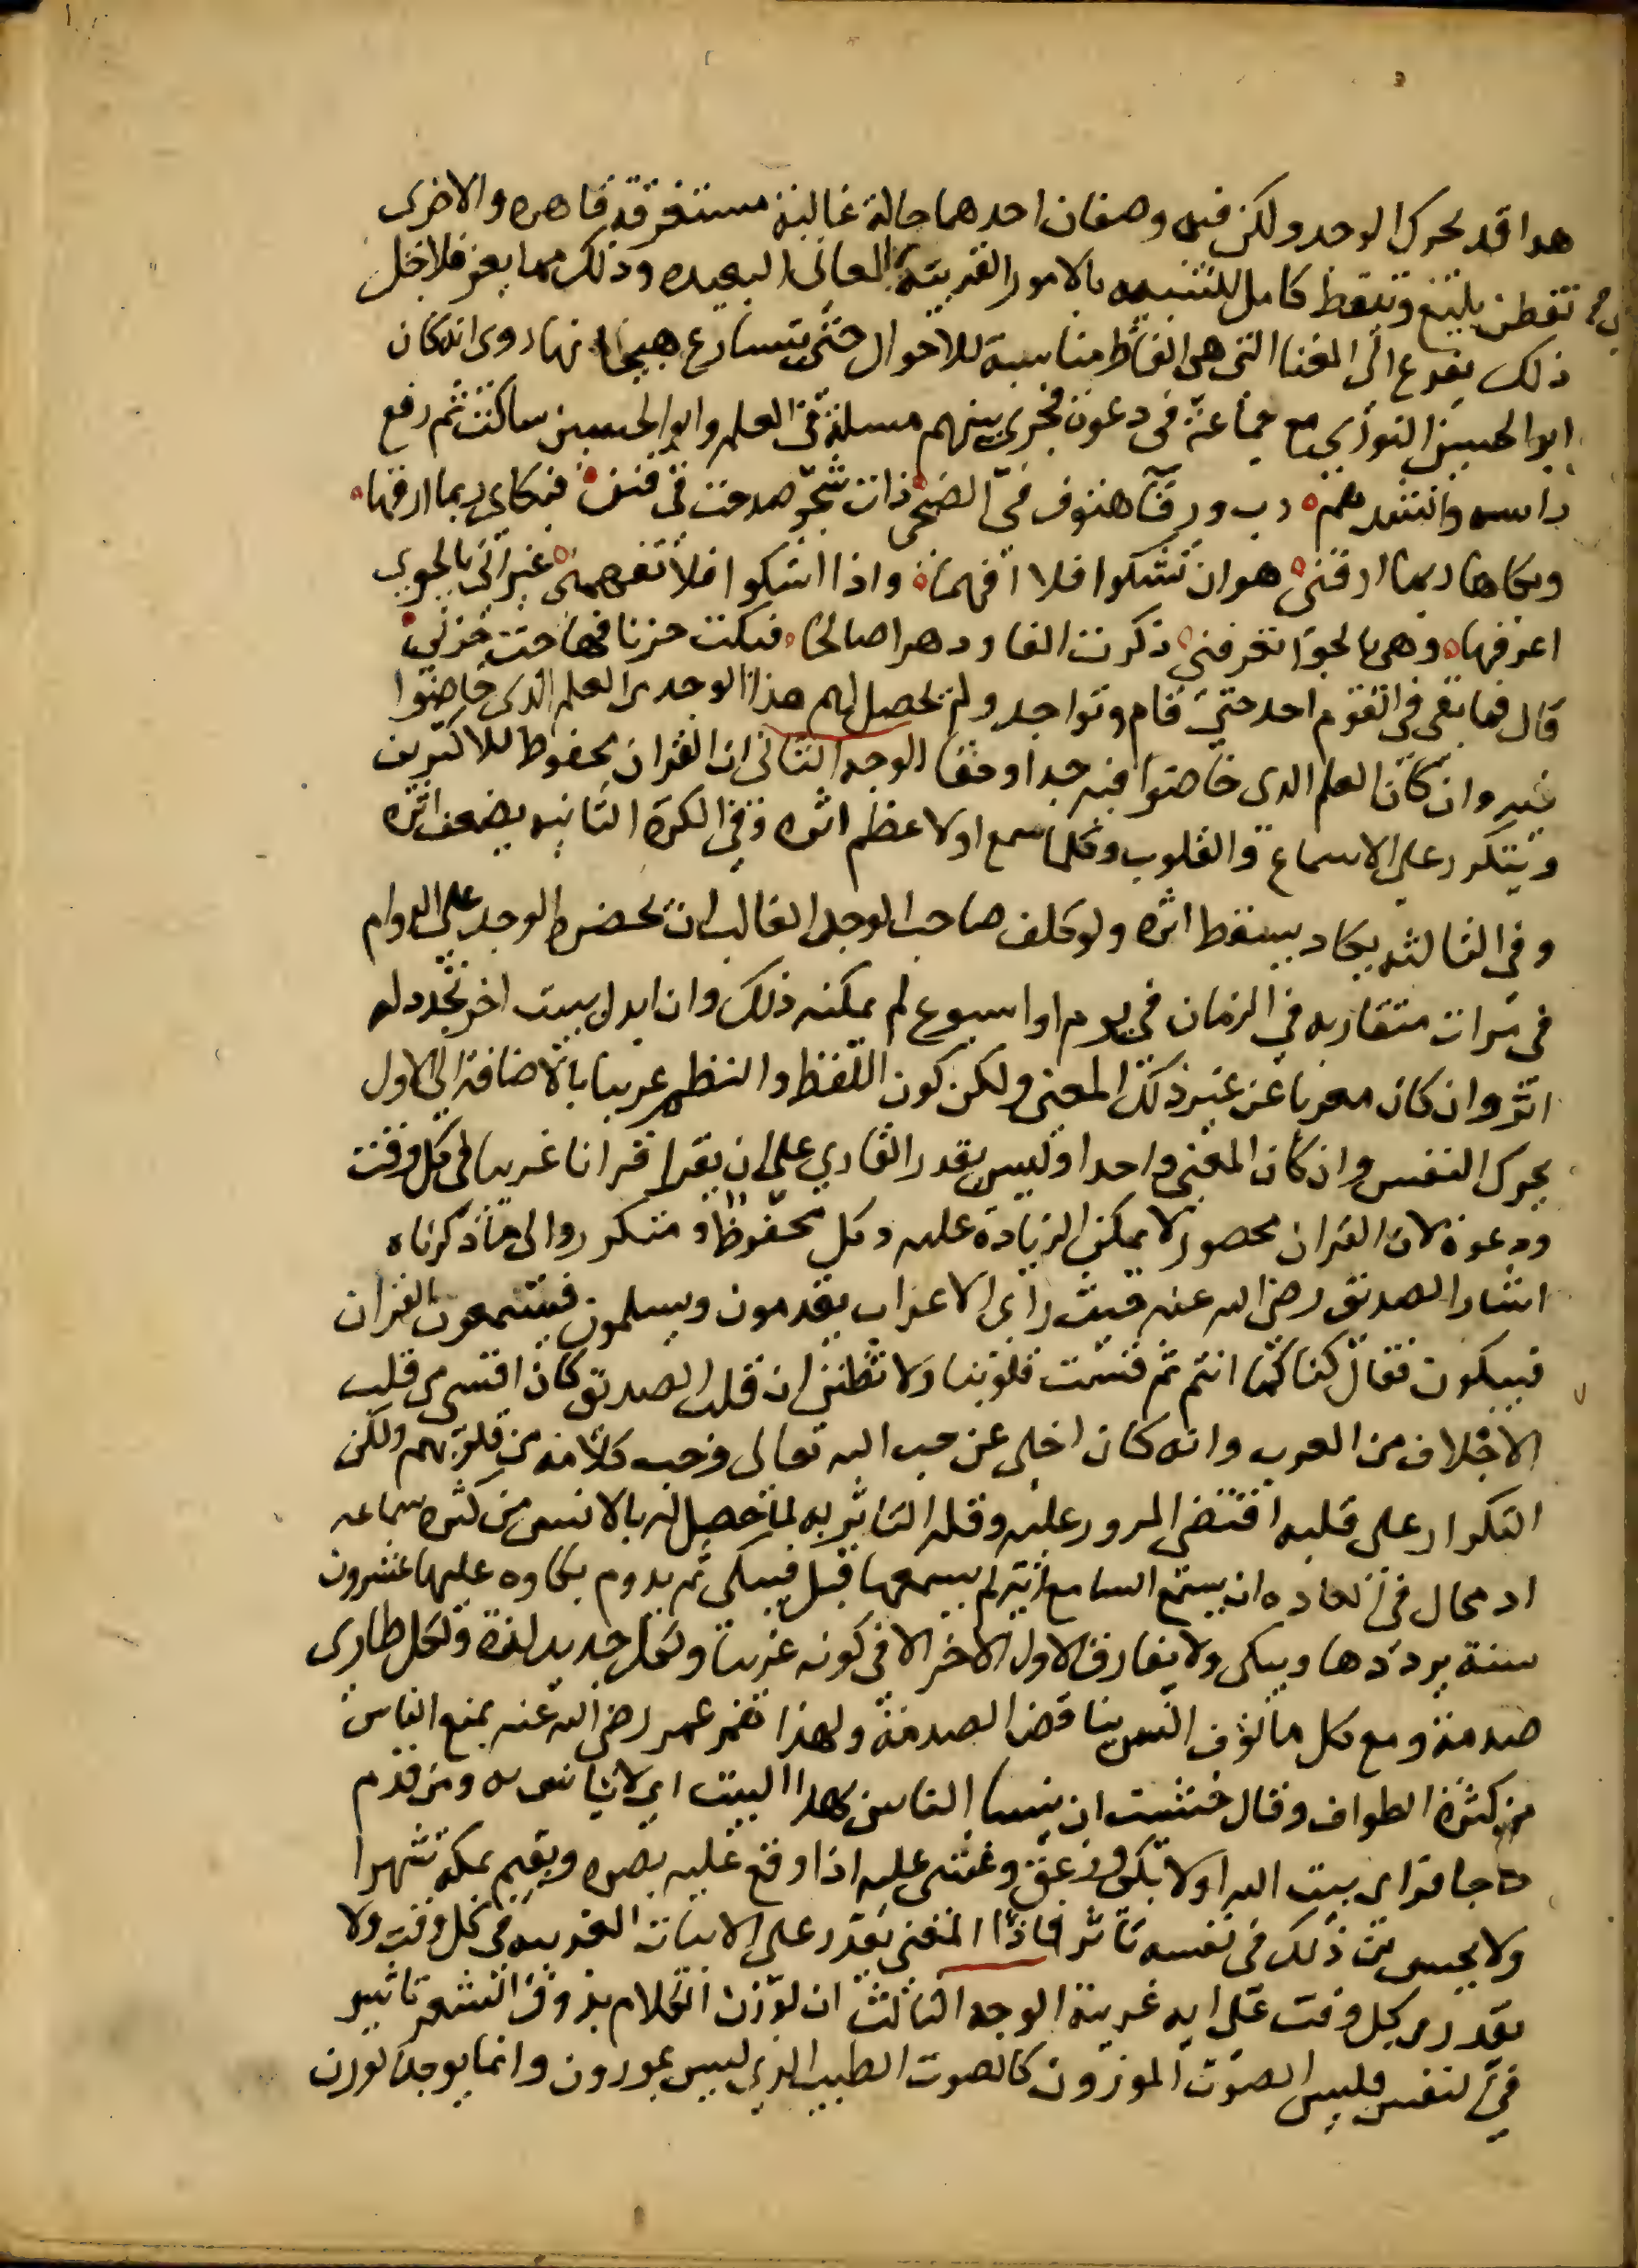 هدا قد يحرك الوجد ولكن فيه وصفان احدهما حالة غالبة مستغرقة قاهره والاخرى
تفطن بليغ وتيقظ كامل للتنبيه بالامور القريبة للمعاني البعيده وذلك مما يعز فلاجل
ذلك يفزع الى الغنا التي هي الفاظ مناسبة للاحوال حتى يتسارع هيجانها روى انه كان
ابو الحسين النوري مع جماعة في دعوة فجرى بينهم مسلة في العلم وابو الحسين ساكت ثم رفع
راسه وانشدهم رب ورقآ هتوف في الضحى ذات شجو صدحت في فنن فبكاى ربما ارقها
وبكاها ربما ارقني هوان تشكوا فلا افهمها واذا اشكوا فلا تفهمني غير اني بالجوى
اعرفها وهي بالجوا تعرفني ذكرت الفا ودهرا صالحا فبكت حزنا فهاجت حزني
قال فما بقى في القوم احد حتى قام وتواجد ولم يحصل لهم هذا الوجد من العلم الذى خاضوا
فيه وان كان العلم الدى خاضوا فيه جدا وحقا الوجه الثاني ان القران محفوظ للاكثرين
ويتكرر على الاسماع والقلوب وكلما سمع اولا عظم اثره وفي الكرة الثانيه يضعف اثره
وفي الثالثه يكاد يسقط اثره ولو كلف صاحب الوجد الغالب ان يحضر الوجد على الدوام
في مرات متقاربه في الزمان في يوم او اسبوع لم يمكنه ذلك وان ابدل ببيت اخر تجدد له
اثر وان كان معربا عن عين ذلك المعنى ولكن كون اللفظ والنظم غريبا بالاضافة الى الاول
يحرك النفس وان كان المعنى واحدا وليس يقدر القارى على ان يقرا قرانا غريبا في كل وقت
ودعوة لان القران محصور لا يمكن الزيادة عليه وكل محفوظ ومتكرر والى ما ذكرناه
اشار الصديق رضي الله عنه حيث راى الاعراب يقدمون ويسلمون فيسمعون القران
فيبكون فقال كنا كما انتم ثم قست قلوبنا ولا تظنن ان قلب الصديق كان اقسى من قلب
الاجلاف من العرب وانه كان اخلى عن حب الله تعالى وحب كلامه من قلوبهم ولكن
التكرار على قلبه اقتضى المرور عليه وقله التاثر به لما حصل له بالانس من كثره سماعه
اد محال في العاده ان يسمع السامع اية لم يسمعها قبل فيبكي ثم يدوم بكاوه عليها عشرون
سنة يرددها ويبكى ولا يفارق الاول الاخر الا في كونه غريبا ولكل جديد لذة ولكل طارى
صدمة ومع كل مالوف انس يناقض الصدمة ولهذا هم عمر رضي الله عنه بمنع الناس
من كثرة الطواف وقال خشيت ان ينسا الناس بهدا البيت اى لا يانس به ومن قدم
حاجا فراى بيت الله اولا بكى وزعق وغشى عليه اذا وقع عليه بصره ويقيم بمكة شهرا
ولا يحس من ذلك في نفسه تاثر فاذا المغنى يقدر على الابيات الغريبه في كل وقت ولا
يقدر في كل وقت على ايه غريبة الوجه الثالث ان لوزن الكلام بذوق الشعر تاثير
في النفس فليس الصوت الموزون كالصوت الطيب الذى ليس بموزون وانما يوجد الوزن